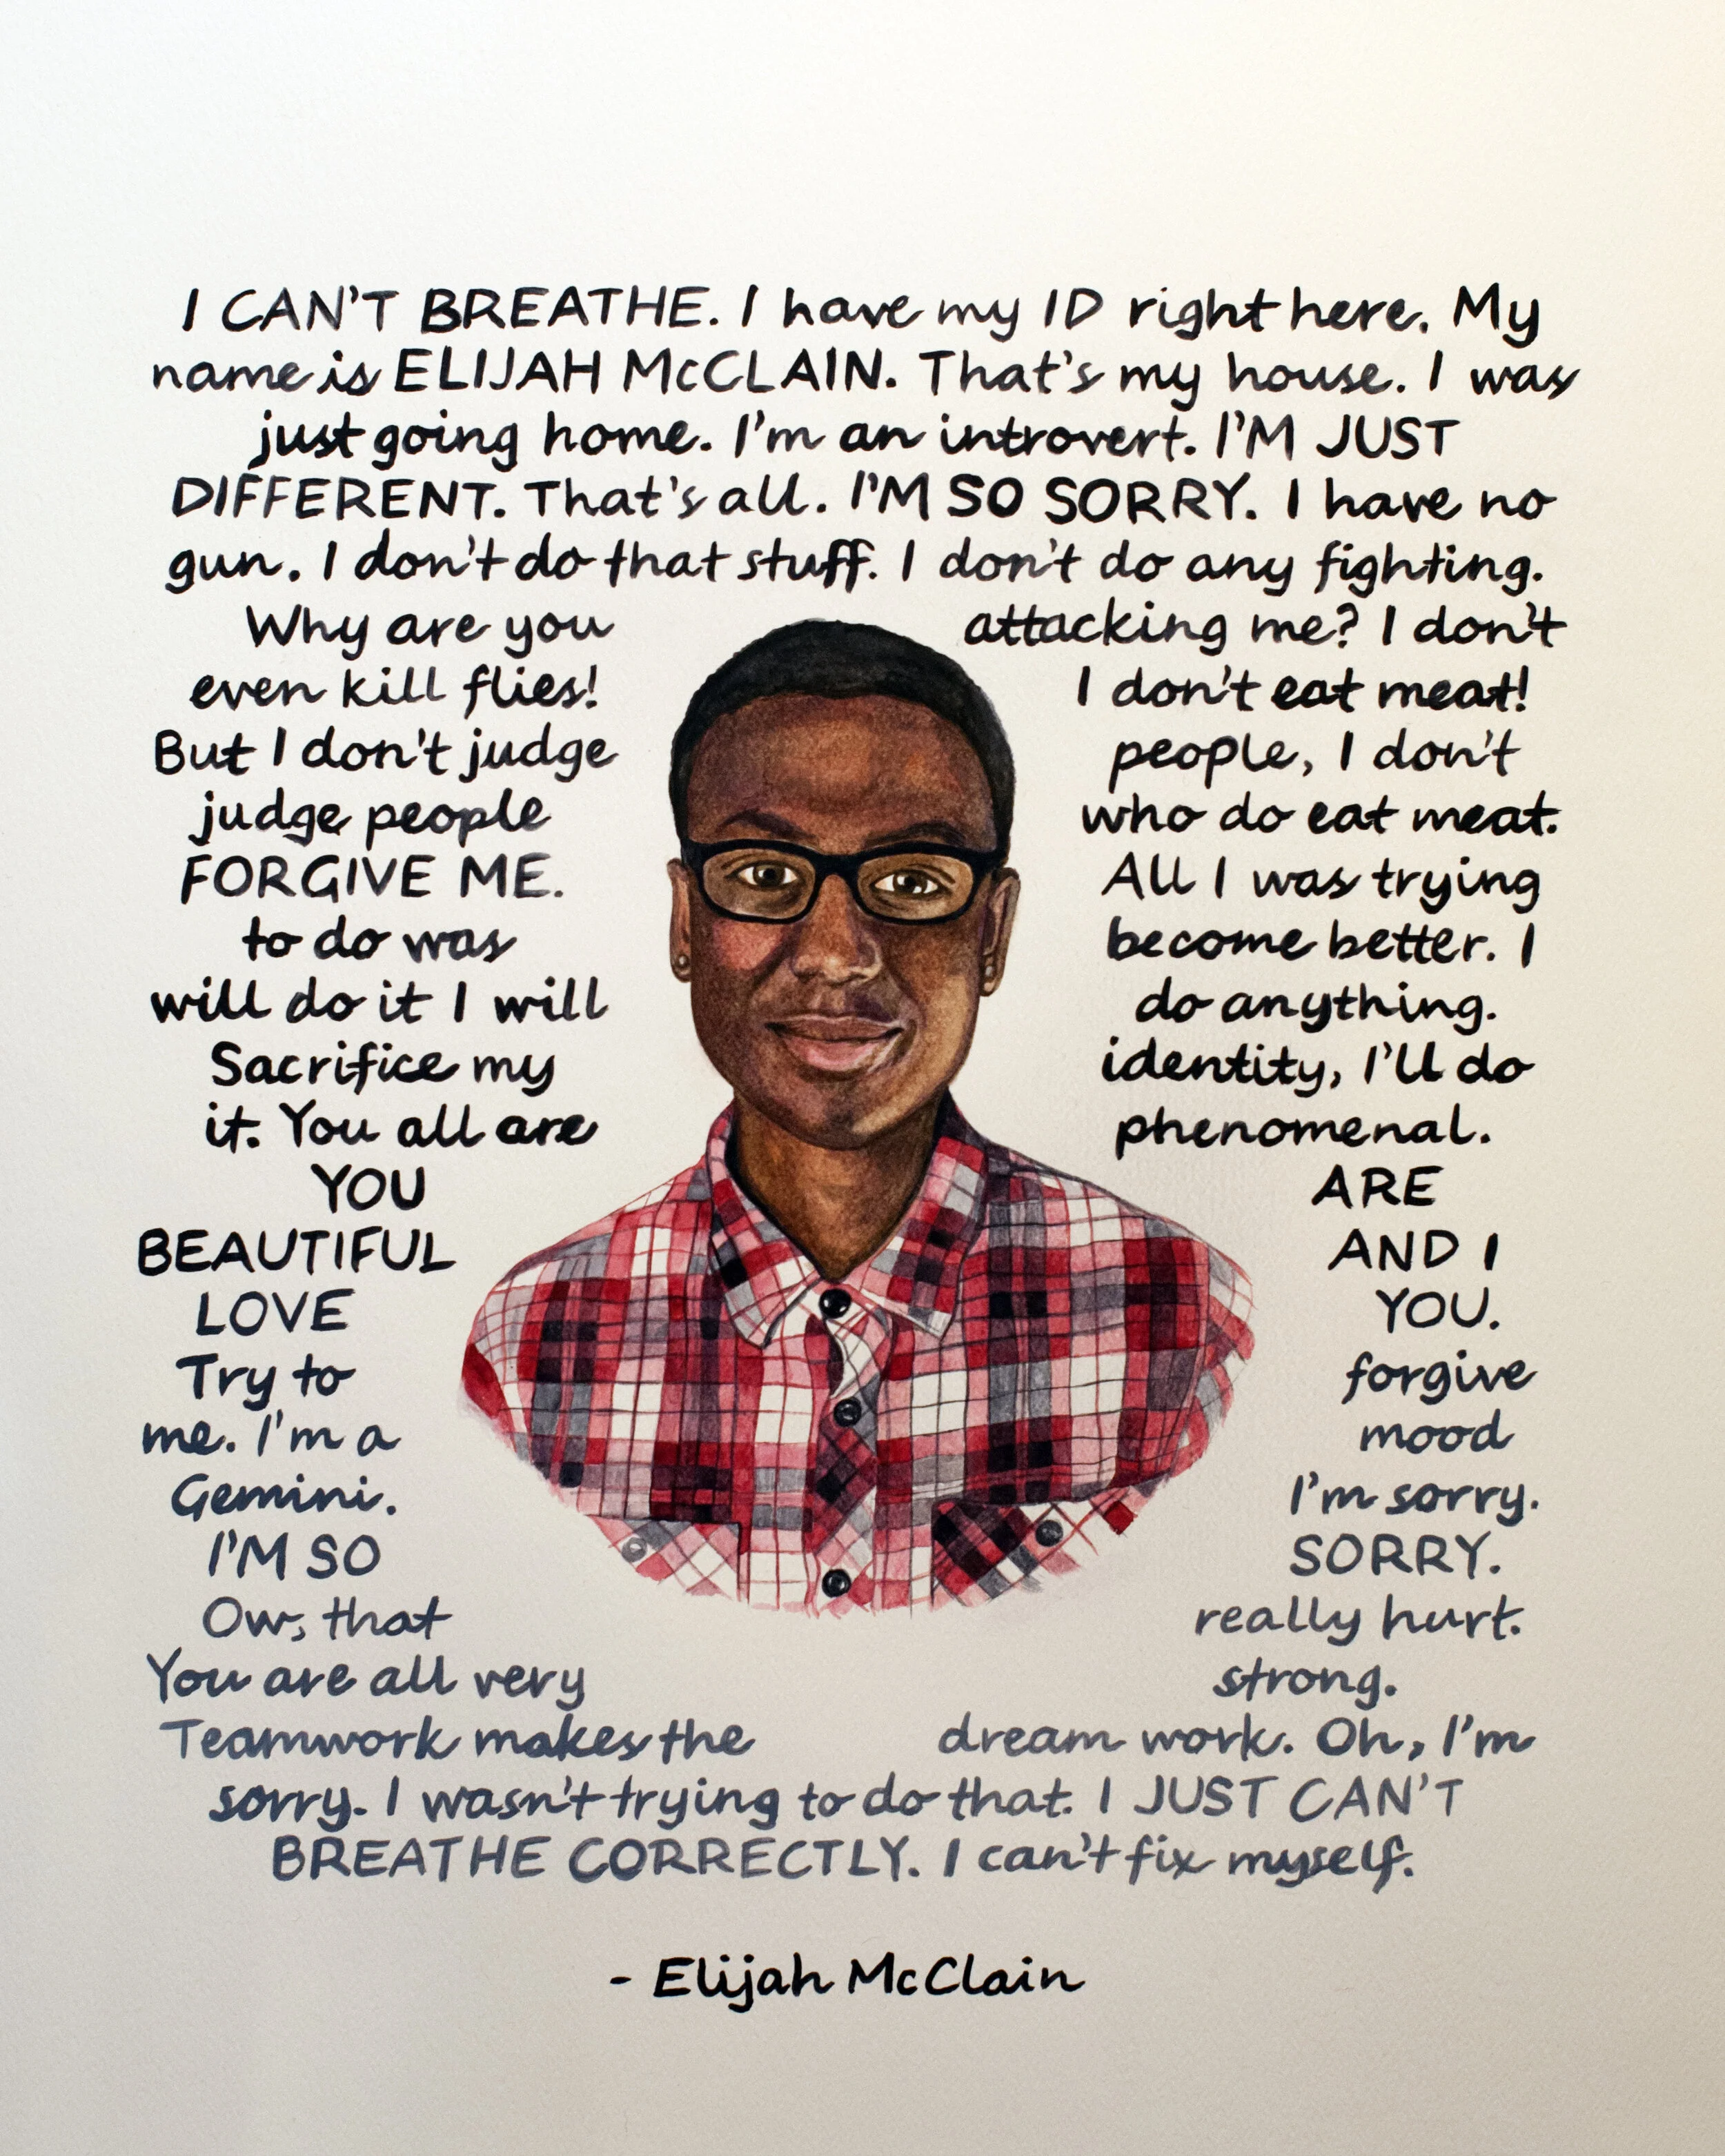 I CAN'T BREATHE. I have my ID right here. My
name is ELIJAH McCLAIN. That's my house. I was
just going home. I'm an introvert. I'M JUST
DIFFERENT. That's all. I'M SO SORRY. I have no
gun. I don't do that stuff. I don't do any fighting.
Why are you attacking me? I don't
even kill flies! I don't eat meat!
But I don't judge people, I don't
judge people who do eat meat.
FORGIVE ME. All I was trying
to do was become better. I
will do it I will do anything.
Sacrifice my identity, I'll do
it. You all are phenomenal.
YOU ARE
BEAUTIFUL AND I
LOVE YOU.
Try to forgive
me. I'm a mood
Gemini. I'm sorry.
I'M SO SORRY.
Ow, that really hurt.
You are all very strong.
Teamwork makes the dream work. Oh, I'm
sorry. I wasn't trying to do that. I JUST CAN'T
BREATHE CORRECTLY. I can't fix myself.
- Elijah McClain